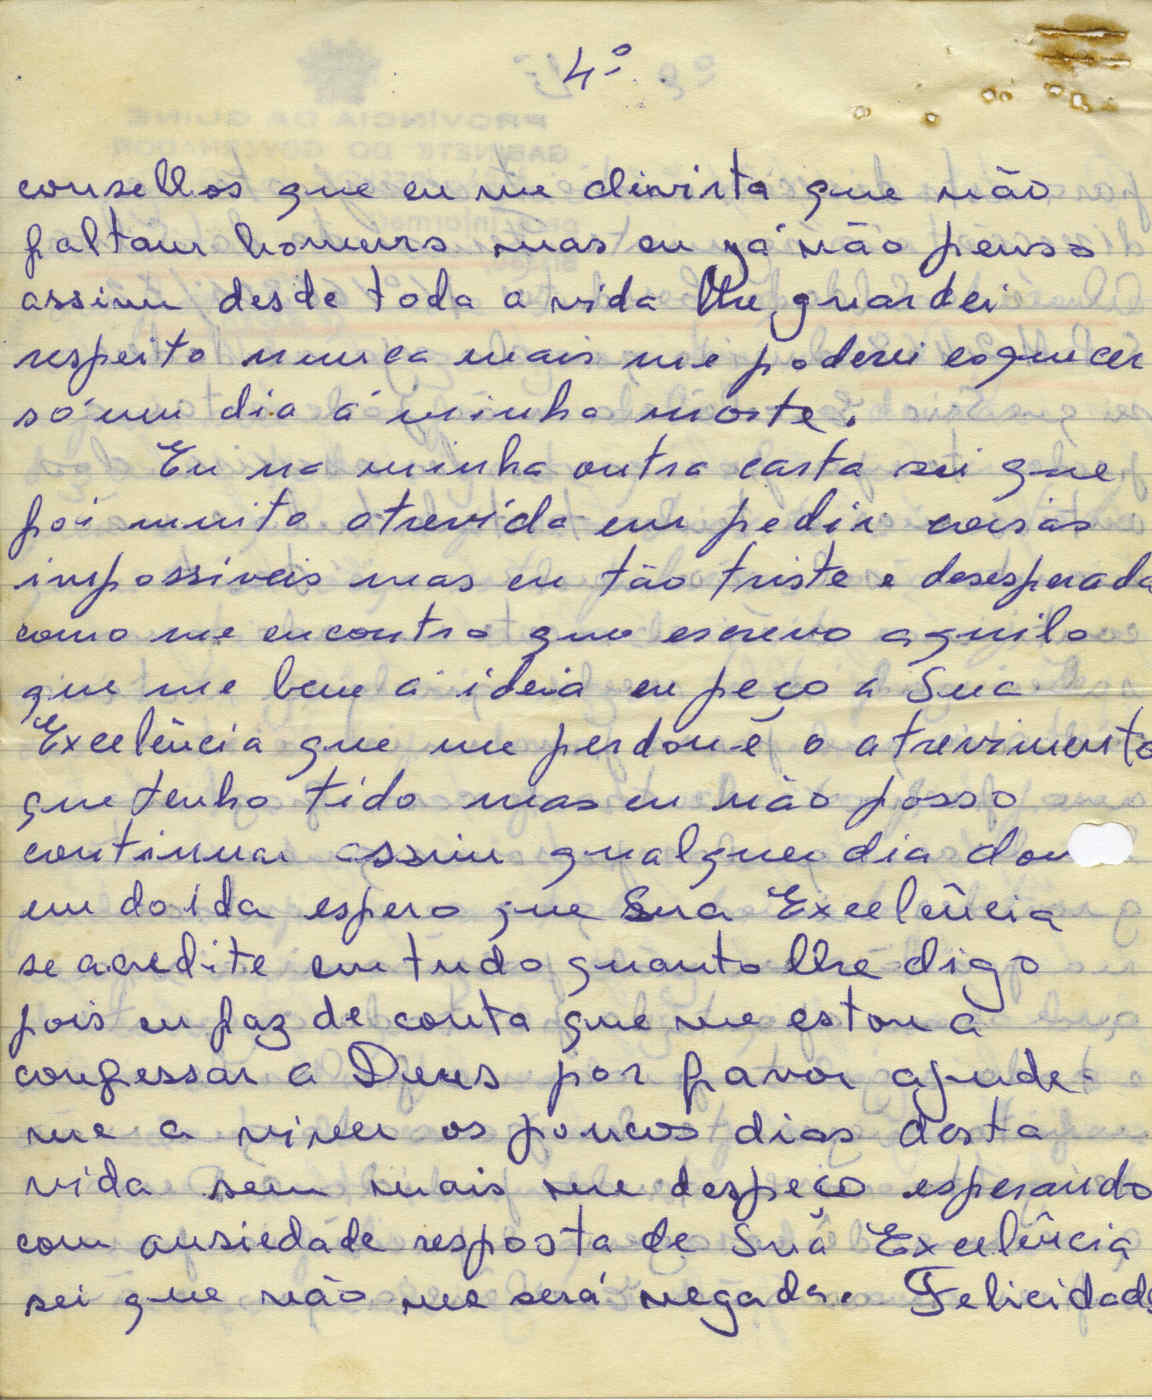 4º
consellos que eu me divirta que não
faltam homens mas eu já não penso
assim desde toda a vida lhe guardei
respeito nunca mais me poderei esquecer
só um dia á minha morte.
Eu na minha outra carta sei que
foi muito atrevida em pedir coisas
impossiveis mas eu tão triste e desesperada
como me encontro que escrevo aquilo
que me bem á ideia eu peço a Sua
Excelência que me perdoué o atrevimento
que tenho tido mas eu não posso
continuar assim qualquer dia dou
em doida espero que Sua Excelência
se acredite em tudo quanto lhe digo
pois eu faz de conta que me estou a
confessar a Deus por favor ajude-
me a viver os poucos dias desta
vida sem mais me despeço esperando
com ansiedade resposta de Suâ Excelência
sei que não me será negada. Felicidade